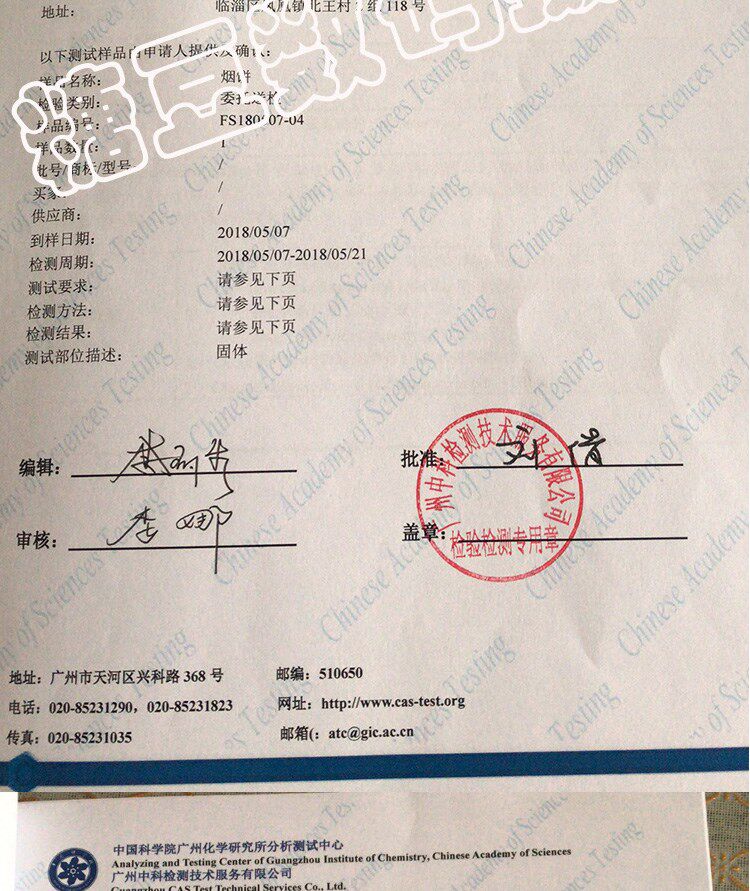 地址： 临淄区凤凰镇北王村 118号
以下测试样品由申请人提供及确认：
样品名称： 烟饼
检验类别： 委托送检
样品编号： FS180 07-04
样品数量： 1
批号/商标/型号： /
买家： /
供应商： /
到样日期： 2018/05/07
检测周期： 2018/05/07-2018/05/21
测试要求： 请参见下页
检测方法： 请参见下页
检测结果： 请参见下页
测试部位描述： 固体
糖豆数码
Chinese Academy of Sciences Testing
编辑：
批准：
审核： 李娜
盖章：
广州中科检测技术服务有限公司
检验检测专用章
地址：广州市天河区兴科路 368 号 邮编：510650
电话：020-85231290，020-85231823 网址：http://www.cas-test.org
传真：020-85231035 邮箱(：atc@gic.ac.cn
中国科学院广州化学研究所分析测试中心
Analyzing and Testing Center of Guangzhou Institute of Chemistry, Chinese Academy of Sciences
广州中科检测技术服务有限公司
Guangzhou CAS Test Technical Services Co., Ltd.